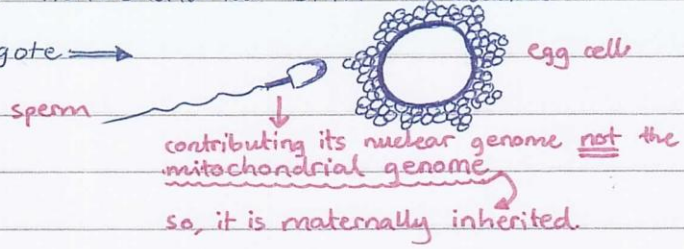 gote
egg cell
sperm
contributing its nuclear genome not the
mitochondrial genome
so, it is maternally inherited.